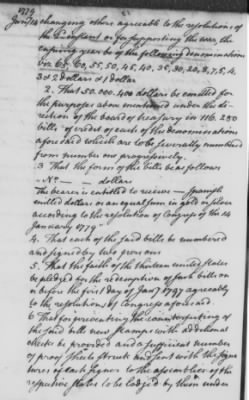 1779
Jany 14 changing others agreeable to the resolutions of
for supporting the war, the
ensuing year be of the following denominations
viz. 60, 55, 50, 45, 40, 35, 30, 20, 8, 7, 5, 4,
3 & 2 dollars & 1 dollar
2. That 50.000.400 dollars be emitted for
the purposes above mentioned under the di-
rection of the board of treasury in 116.280
bills of credit of each of the denominations
aforesaid which are to be severally numbered
from number one progressively.
3 That the form of the bills be as follows
No — dollars
The bearer is entitled to receive — Spanish
milled dollars or an equal sum in gold or silver
according to the resolution of Congress of the 14
January 1779
4. That each of the said bills be numbered
and signed by two persons
5. That the faith of the thirteen united states
be pledged for the redemption of such bills on
or before the first day of Jany 1797 agreeably
to the resolutions of Congress aforesaid.
6 That for preventing the counterfeiting of
the said bills new stamps with additional
checks be provided and a sufficient number
of proof sheets struck and sent with the signa
tures of each signer to the assemblies of the
respective states to be lodged by them under